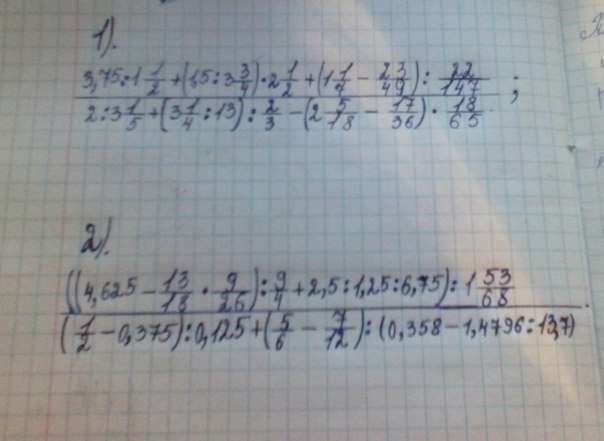 1).
3,75:1 1/2 + (1,5:3 3/4) · 2 1/2 + (1 1/7 − 23/49) : 22/147
2:3 1/5 + (3 1/4 : 13) : 2/3 − (2 5/18 − 17/36) · 18/65 ;
2).
((4,625 − 13/18 · 9/26) : 9/4 + 2,5:1,25:6,75) : 1 53/68
(1/2 − 0,375) : 0,125 + (5/6 − 7/12) : (0,358 − 1,4796 : 13,7) .